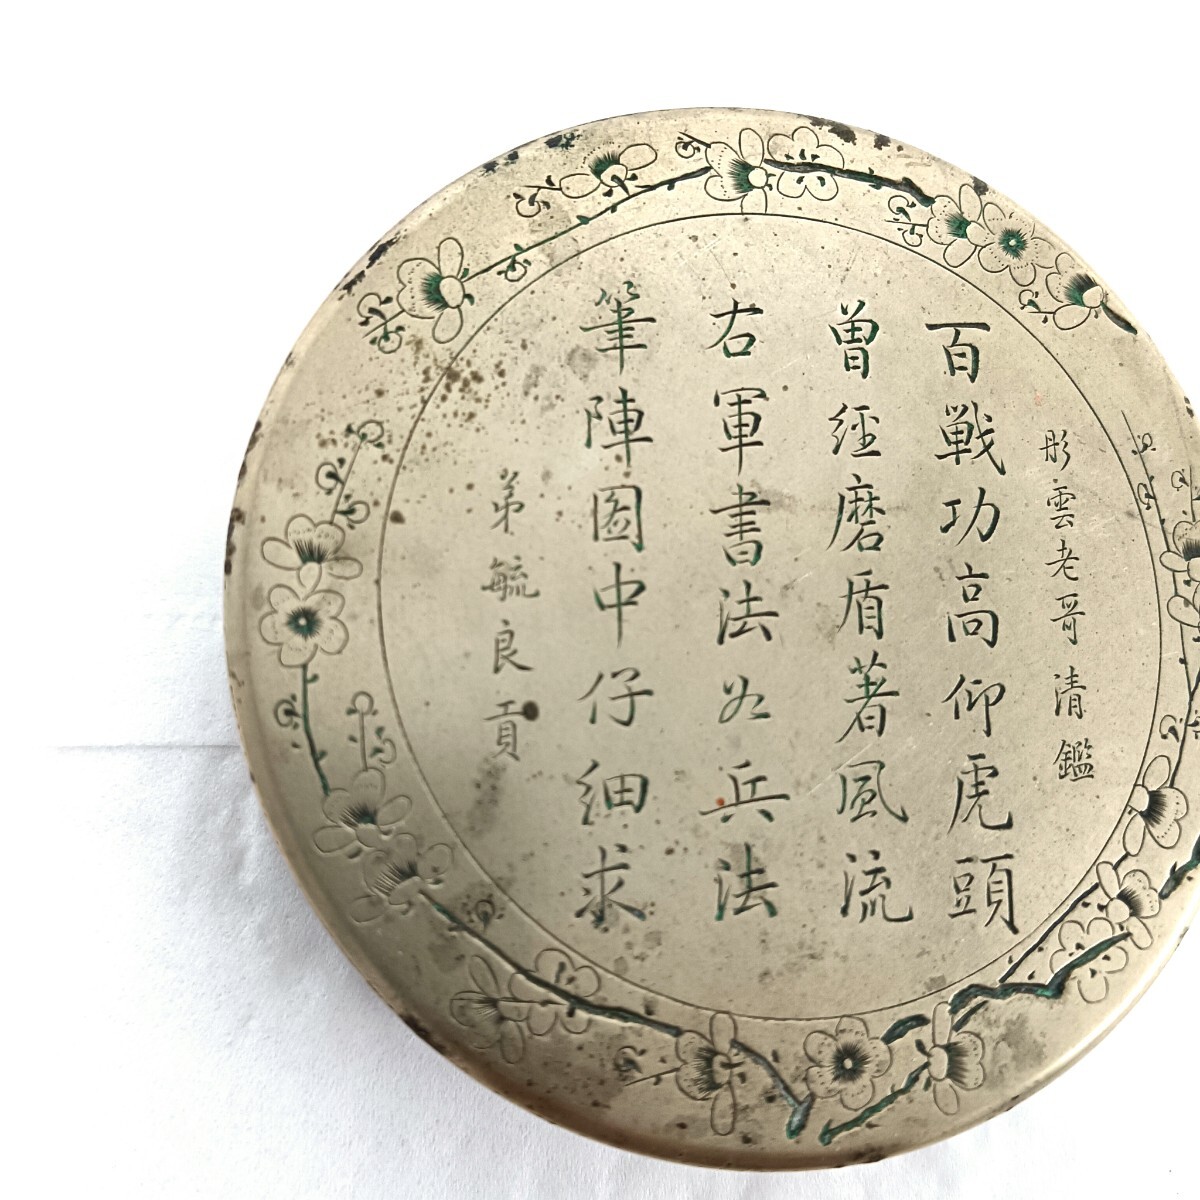 彤雲老哥清鑑
百戦功高仰虎頭
曽経磨盾著風流
右軍書法如兵法
筆陣図中仔細求
弟毓良貢